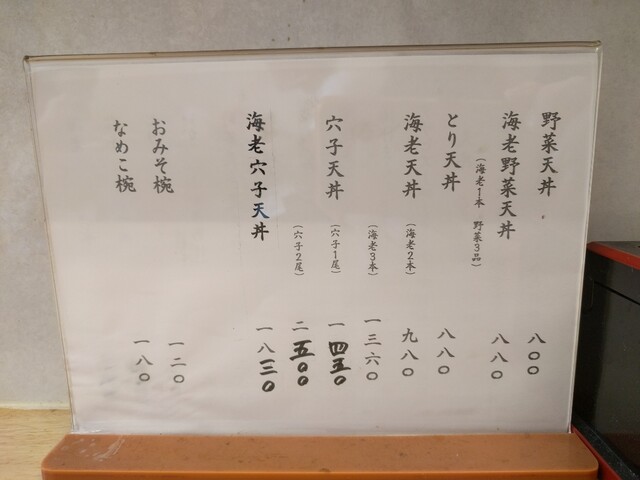 野菜天丼 八〇〇
海老野菜天丼 八八〇
(海老1本 野菜3品)
とり天丼 八八〇
海老天丼 (海老2本) 九八〇
(海老3本) 一三六〇
穴子天丼 (穴子1尾) 一四五〇
(穴子2尾) 二五〇〇
海老穴子天丼 一八三〇
おみそ椀 一二〇
なめこ椀 一八〇